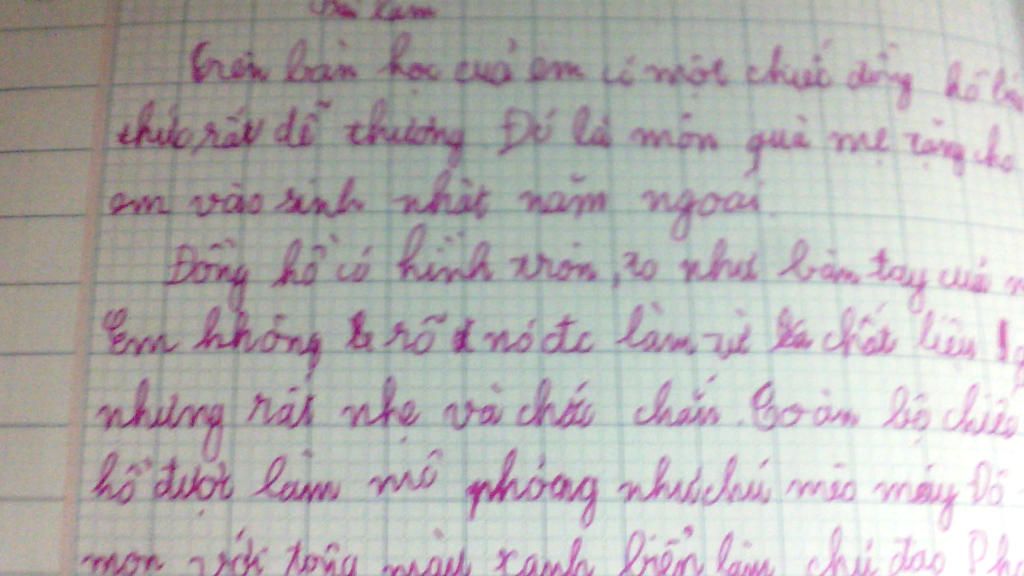 Bài làm
Trên bàn học của em có một chiếc đồng hồ bá
thức rất dễ thương Đó là món quà mẹ tặng cho
em vào sinh nhật năm ngoái.
Đồng hồ có hình tròn, to như bàn tay của m
Em không rõ nó đc làm từ chất liệu g
nhưng rất nhẹ và chắc chắn. Toàn bộ chiếc
hồ được làm mô phỏng như chú mèo máy Đô
mon với tông màu xanh biển làm chủ đạo Ph